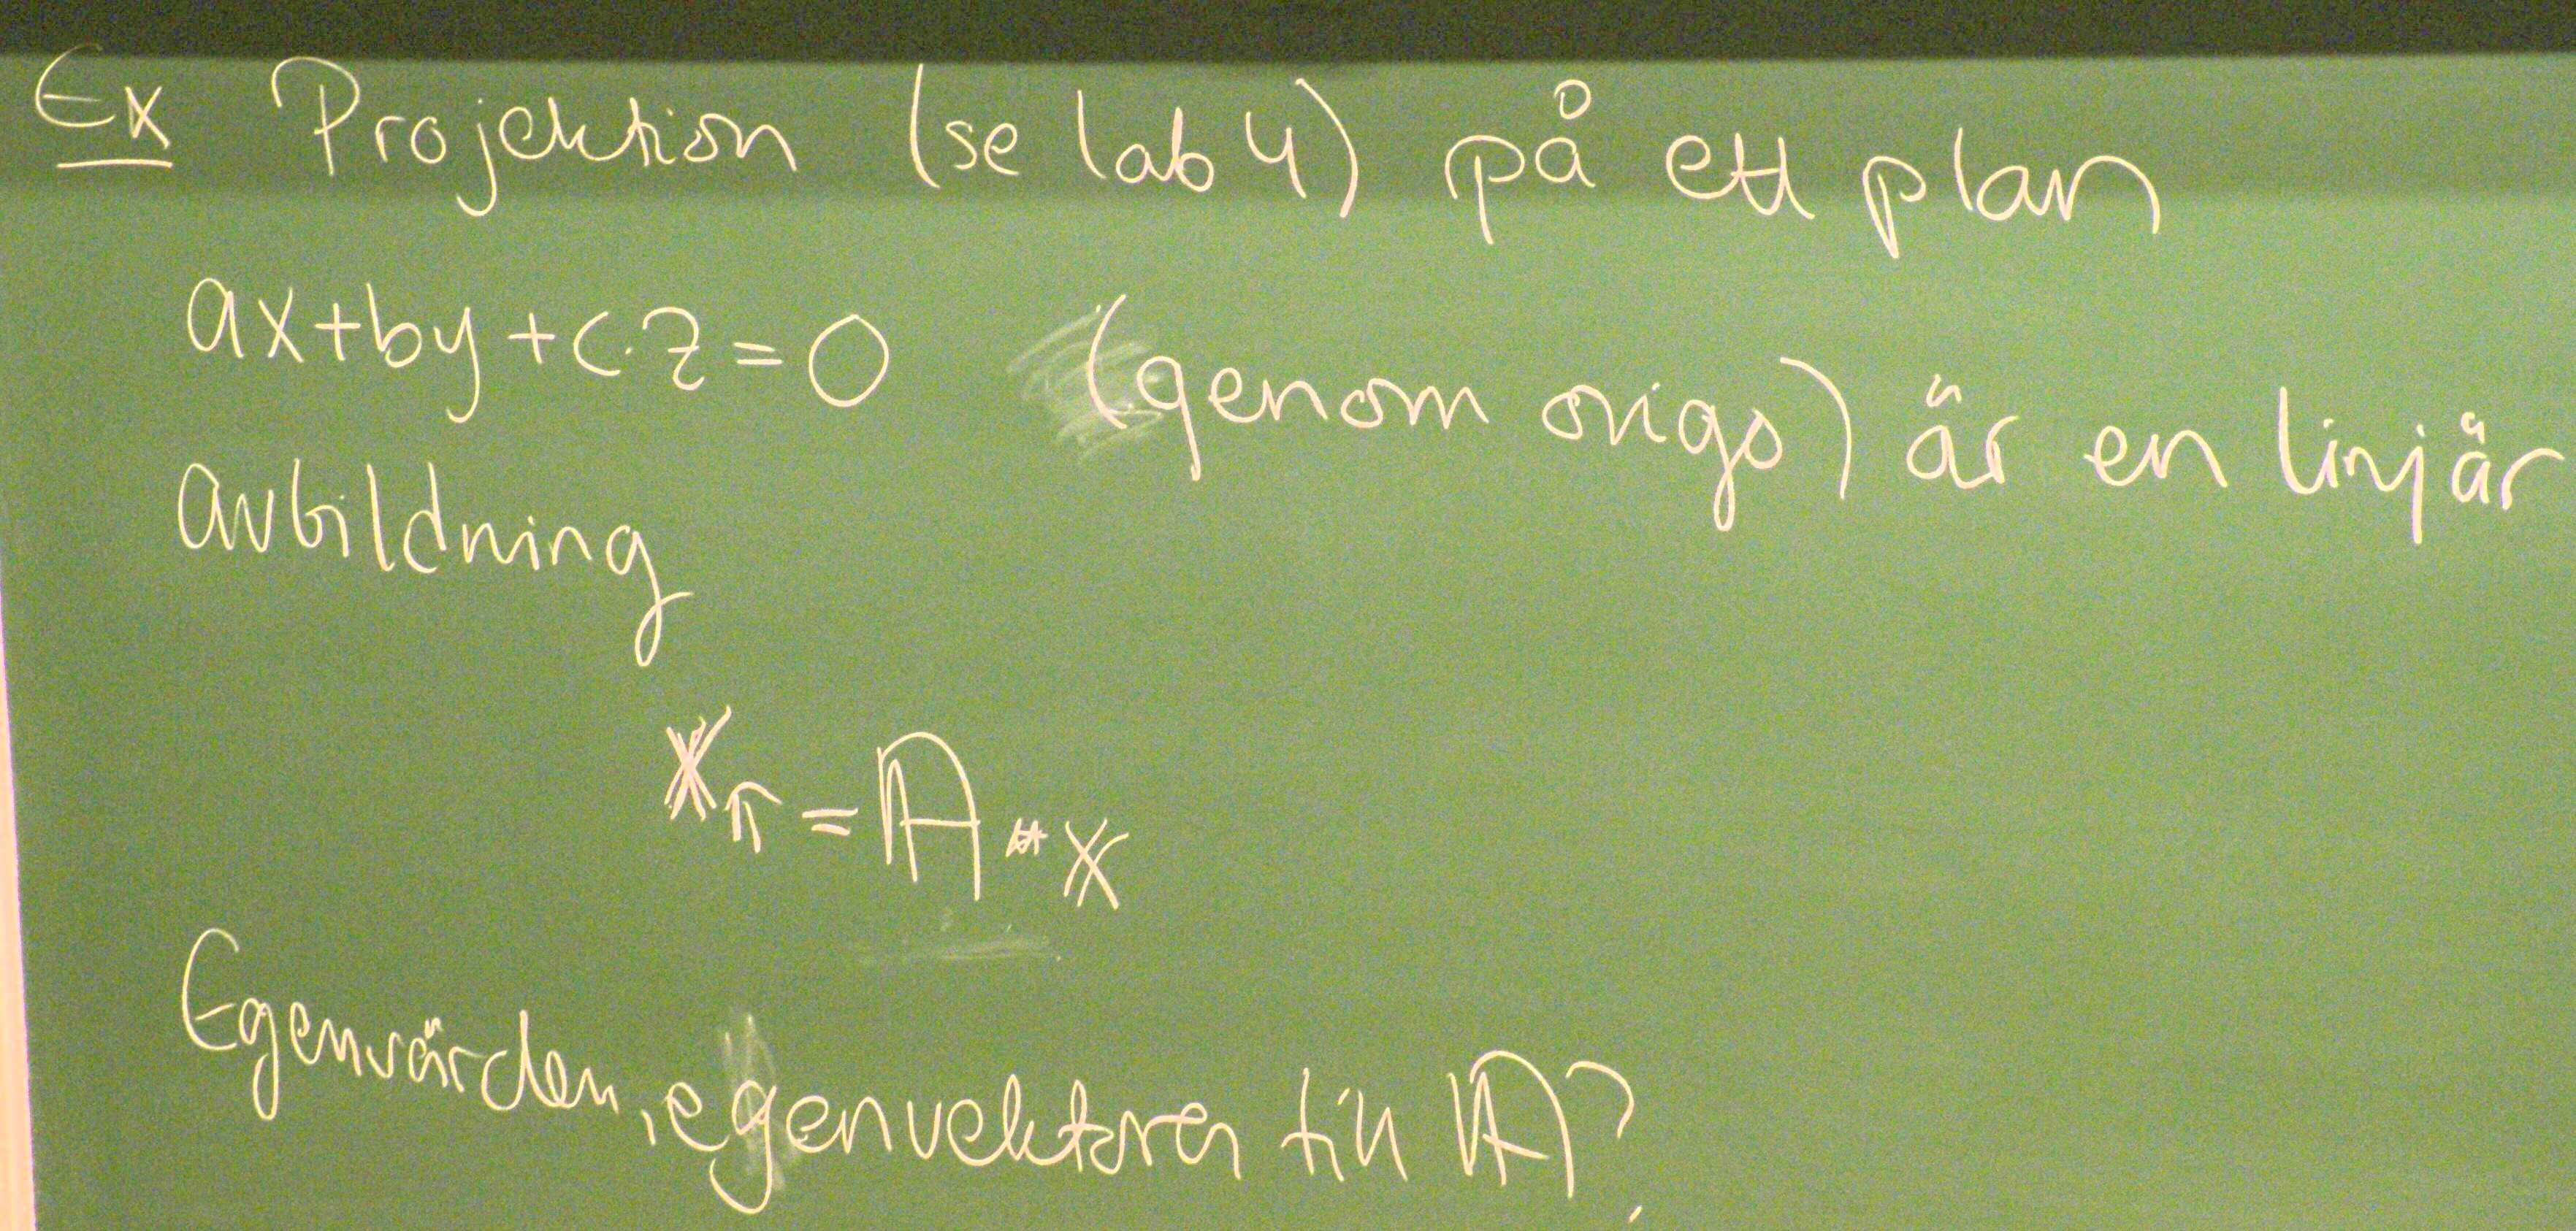 Ex Projektion (se lab 4) på ett plan
ax+by+c·z=0 (genom origo) är en linjär
avbildning
𝕏π = 𝔸 · 𝕏
Egenvärden, egenvektorer till 𝔸?